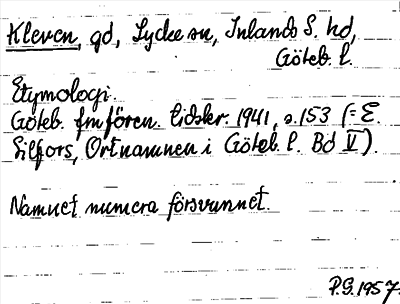 Kleven, gd, Lycke sn, Inlands S. hd,
Göteb. l.
Etymologi.
Göteb. fm fören. tidskr. 1941, s. 153 (= E.
Eilfors, Ortnamnen i Göteb. l. Bd V).
Namnet numera försvunnet.
P.G. 1957.